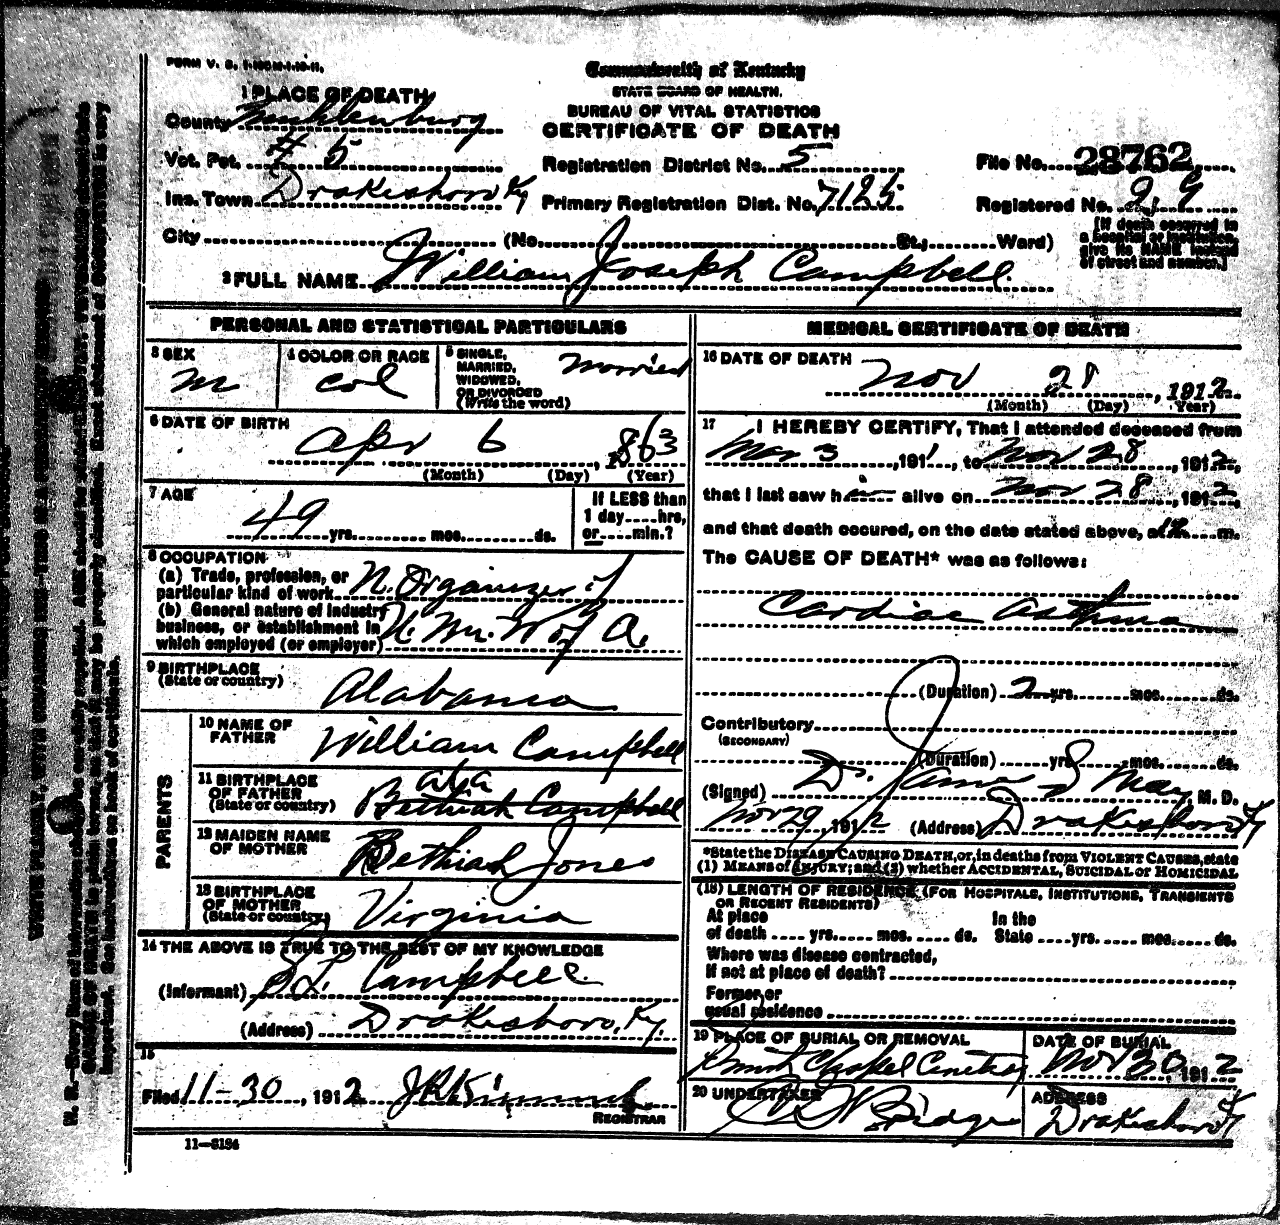 FORM V. S.
Commonwealth of Kentucky
STATE BOARD OF HEALTH.
BUREAU OF VITAL STATISTICS
CERTIFICATE OF DEATH
1 PLACE OF DEATH
County Muhlenburg
Vot. Pct. # 5
Registration District No. 5
File No. 28762
Inc. Town Drakesboro Ky
Primary Registration Dist. No. 7125
Registered No. 29
City (No. St., Ward)
[If death occurred in a hospital or institution, give its NAME instead of street and number.]
2 FULL NAME William Joseph Campbell
PERSONAL AND STATISTICAL PARTICULARS
3 SEX
m
4 COLOR OR RACE
col
5 SINGLE,
MARRIED,
WIDOWED,
OR DIVORCED
(Write the word)
Married
6 DATE OF BIRTH
Apr 6, 1863
(Month) (Day) (Year)
7 AGE
49 yrs. mos. ds.
If LESS than
1 day....hrs,
or....min.?
8 OCCUPATION
(a) Trade, profession, or
particular kind of work N. Organizer of
(b) General nature of industry
business, or establishment in
which employed (or employer) U. M. W of A.
9 BIRTHPLACE
(State or country)
Alabama
PARENTS
10 NAME OF
FATHER
William Campbell
11 BIRTHPLACE
OF FATHER
(State or country)
ala
Bethiah Campbell
12 MAIDEN NAME
OF MOTHER
Bethiah Jones
13 BIRTHPLACE
OF MOTHER
(State or country)
Virginia
14 THE ABOVE IS TRUE TO THE BEST OF MY KNOWLEDGE
(Informant) Campbell
(Address) Drakesboro, Ky.
15
Filed 11-30, 1912
REGISTRAR
11-6184
MEDICAL CERTIFICATE OF DEATH
16 DATE OF DEATH
Nov 28, 1912
(Month) (Day) Year)
17 I HEREBY CERTIFY, That I attended deceased from
Mar 3, 1911, to Nov 28, 1912,
that I last saw him alive on Nov 28, 1912,
and that death occured, on the date stated above, at m.
The CAUSE OF DEATH* was as follows:
Cardiac asthma
(Duration) 2 yrs. mos. ds.
Contributory
(SECONDARY)
(Duration) yrs. mos. ds.
(Signed) Dr. James S May M. D.
Nov 29, 1912 (Address) Drakesboro Ky
*State the DISEASE CAUSING DEATH, or, in deaths from VIOLENT CAUSES, state
(1) MEANS OF INJURY; and (2) whether ACCIDENTAL, SUICIDAL or HOMICIDAL
(18) LENGTH OF RESIDENCE (FOR HOSPITALS, INSTITUTIONS, TRANSIENTS
OR RECENT RESIDENTS)
At place
of death .... yrs. mos. ds.
In the
State .... yrs. mos. ds.
Where was disease contracted,
if not at place of death?
Former or
usual residence
19 PLACE OF BURIAL OR REMOVAL
Chapel
DATE OF BURIAL
Nov 30, 1912
20 UNDERTAKER
Bridges
ADDRESS
Drakesboro Ky